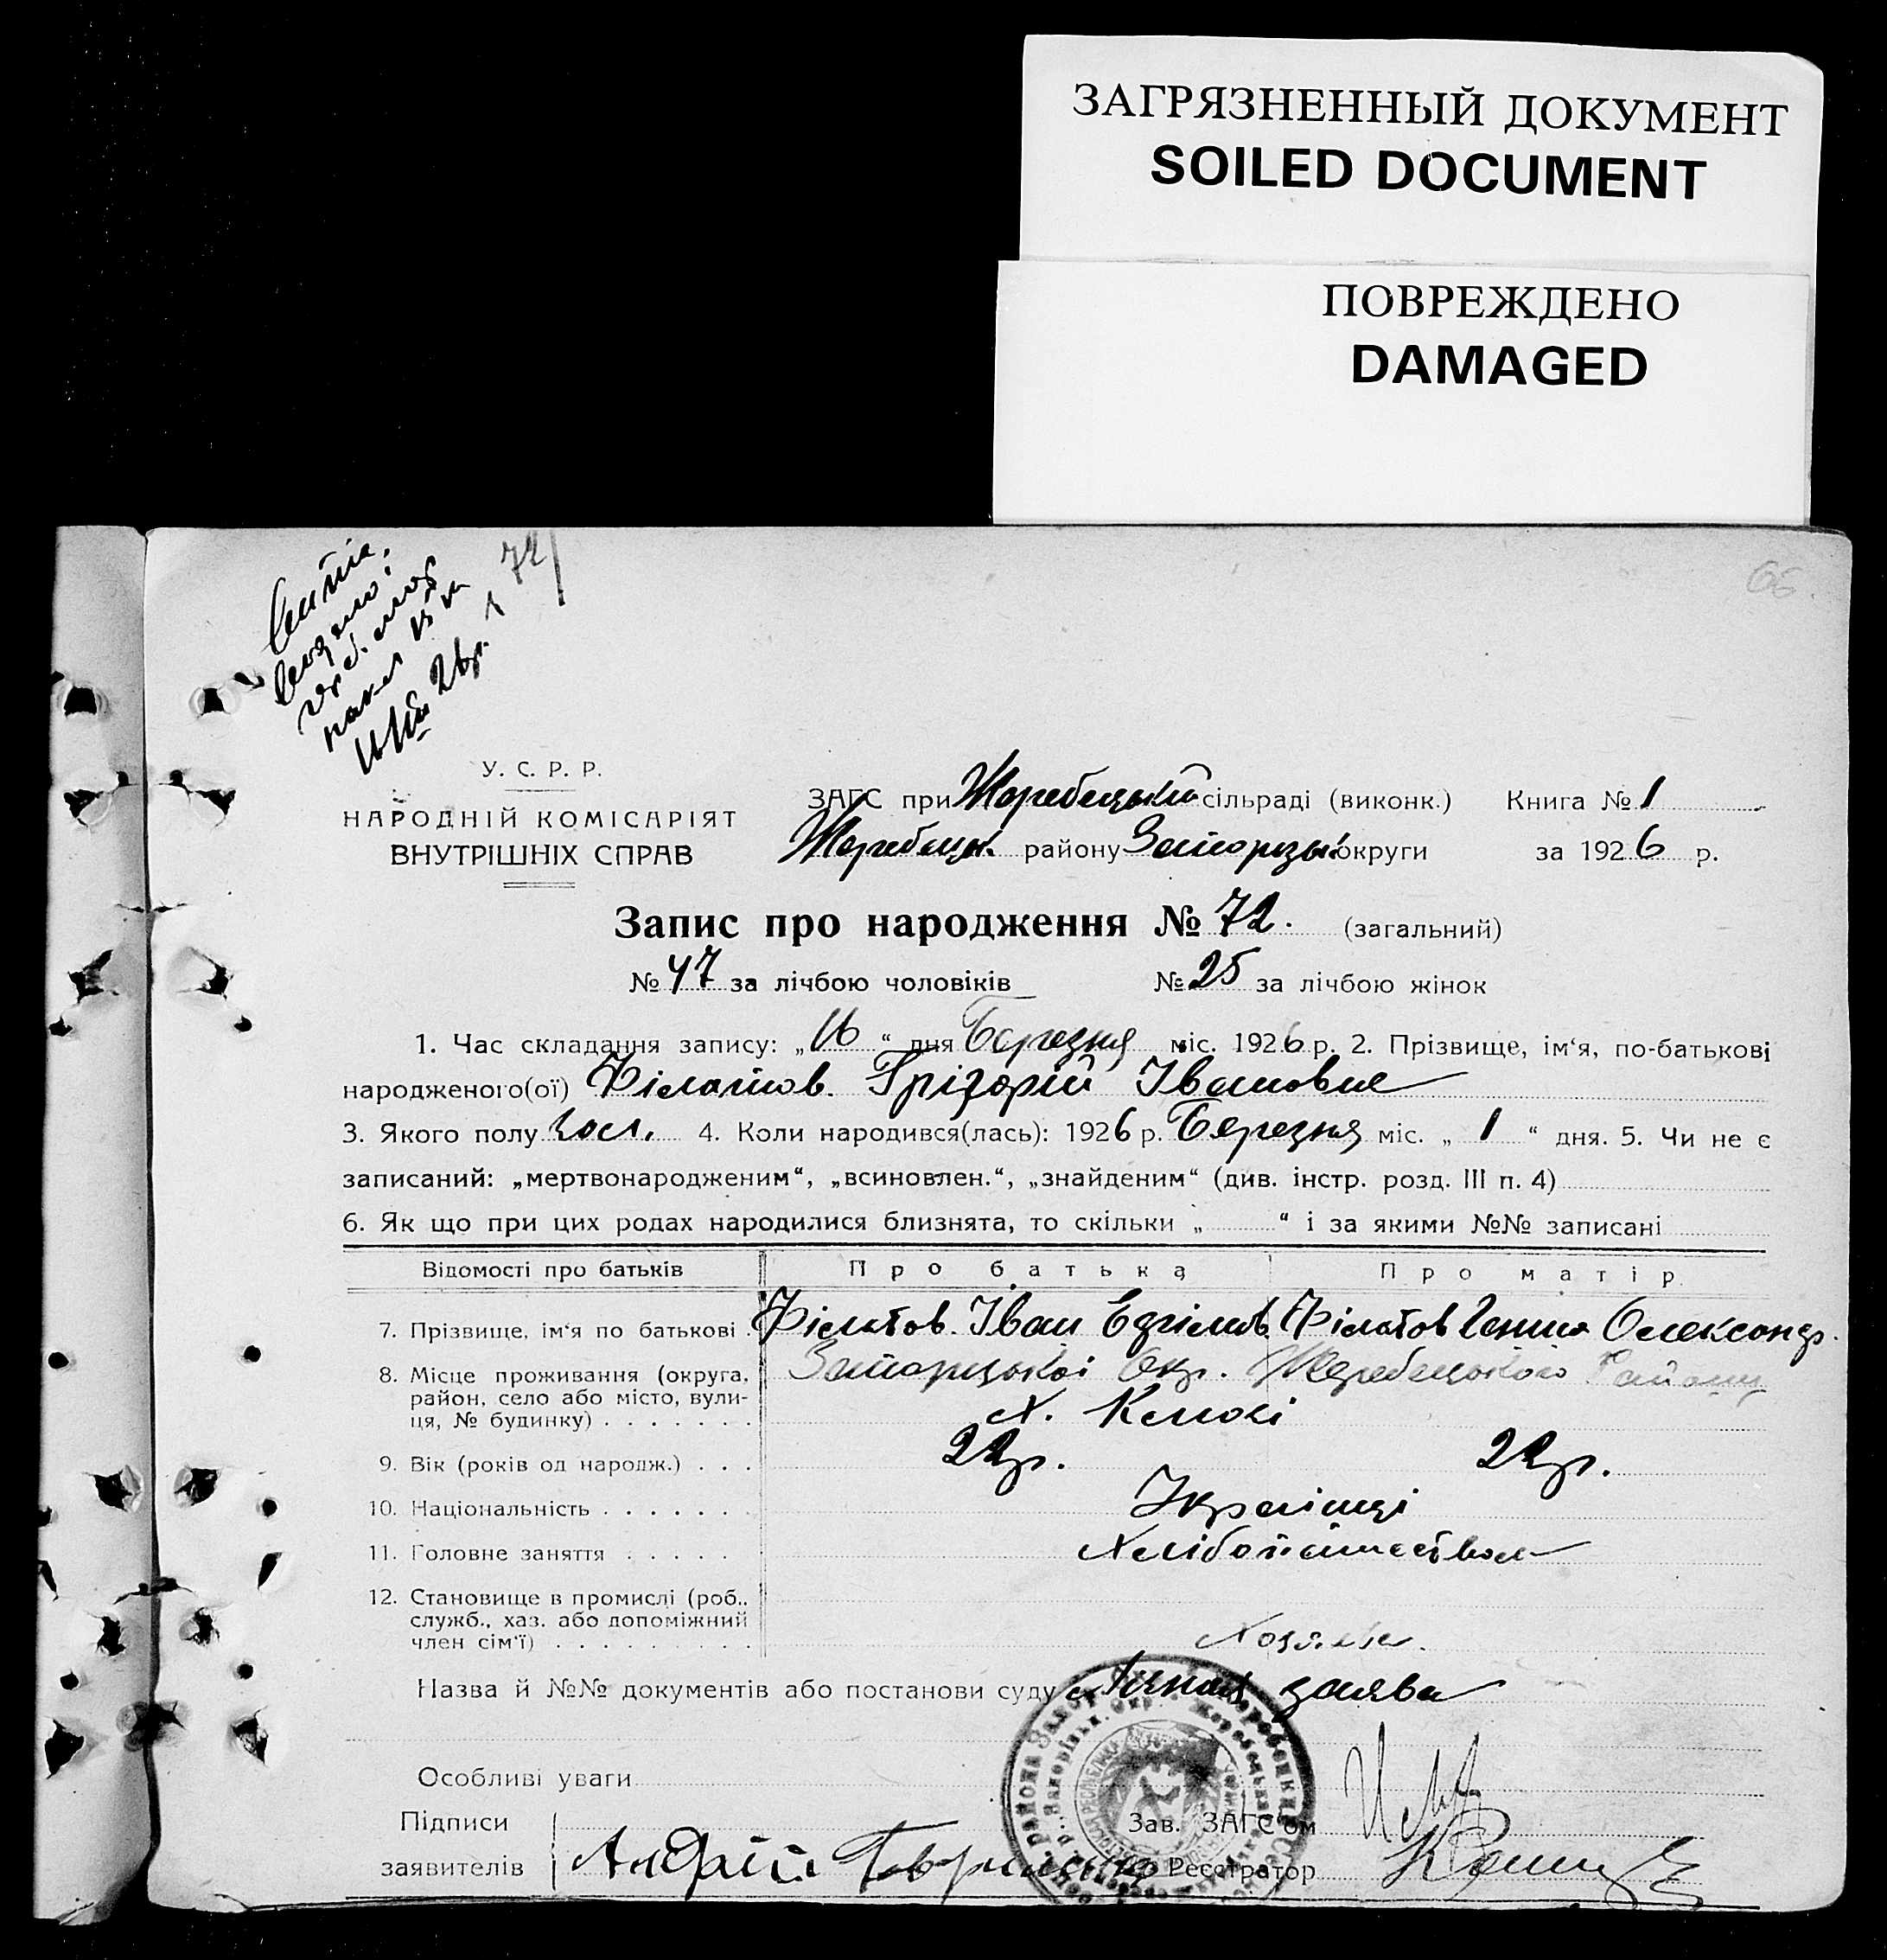 ЗАГРЯЗНЕННЫЙ ДОКУМЕНТ
SOILED DOCUMENT
ПОВРЕЖДЕНО
DAMAGED
72
66.
У. С. Р. Р.
НАРОДНІЙ КОМІСАРІЯТ
ВНУТРІШНІХ СПРАВ
ЗАГС при Жеребецькій сільраді (виконк.) Книга № 1
Жеребецьк. району Запорізьк. округи за 1926 р.
Запис про народження № 72. (загальний)
№ 47 за лічбою чоловіків № 25 за лічбою жінок
1. Час складання запису: „16“ дня Березня міс. 1926 р. 2. Прізвище, ім‘я, по-батькові
народженого(ої) Філатов Грігорій Іванович
3. Якого полу чол. 4. Коли народився(лась): 1926 р. Березня міс. „1“ дня. 5. Чи не є
записаний: „мертвонародженим“, „всиновлен.“, „знайденим“ (див. інстр. розд. III п. 4)
6. Як що при цих родах народилися близнята, то скільки „ “ і за якими №№ записані
Відомості про батьків Про батька Про матір
7. Прізвище, ім‘я по батькові Філатов Іван Філатов Олександр.
8. Місце проживання (округа, Запорізької Окр. Жеребецького Району
район, село або місто, вули-
ця, № будинку) х.
9. Вік (років од народж.) 22 р. 22 р.
10. Національність Українці
11. Головне заняття Хліборобство
12. Становище в промислі (роб.,
служб., хаз. або допоміжний
член сім‘ї)
Назва й №№ документів або постанови суду заява
Особливі уваги
Підписи Зав. ЗАГС‘ом
заявителів Андрій Реєстратор